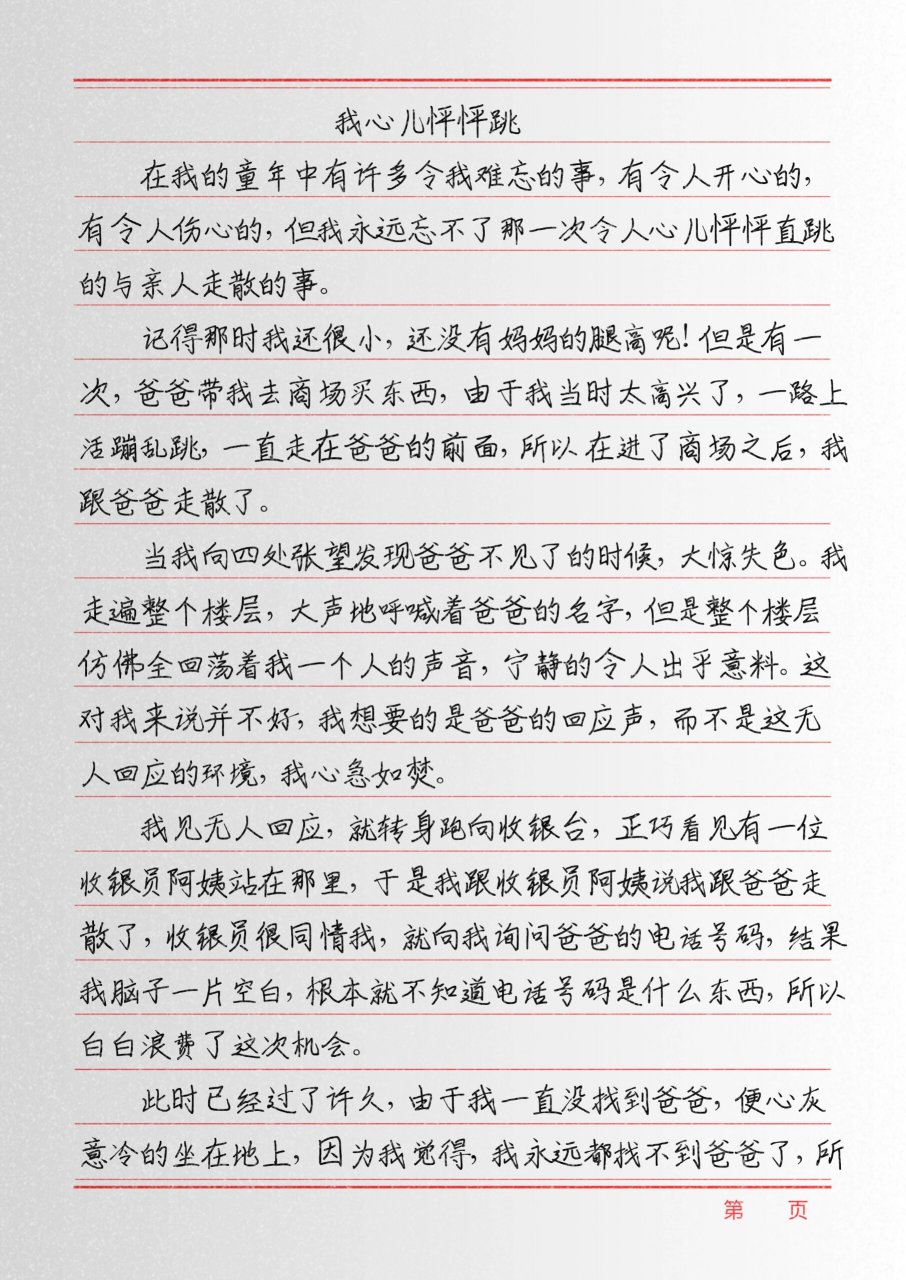 我心儿怦怦跳
在我的童年中有许多令我难忘的事，有令人开心的，
有令人伤心的，但我永远忘不了那一次令人心儿怦怦直跳
的与亲人走散的事。
记得那时我还很小，还没有妈妈的腿高呢！但是有一
次，爸爸带我去商场买东西，由于我当时太高兴了，一路上
活蹦乱跳，一直走在爸爸的前面，所以在进了商场之后，我
跟爸爸走散了。
当我向四处张望发现爸爸不见了的时候，大惊失色。我
走遍整个楼层，大声地呼喊着爸爸的名字，但是整个楼层
仿佛全回荡着我一个人的声音，宁静的令人出乎意料。这
对我来说并不好，我想要的是爸爸的回应声，而不是这无
人回应的环境，我心急如焚。
我见无人回应，就转身跑向收银台，正巧看见有一位
收银员阿姨站在那里，于是我跟收银员阿姨说我跟爸爸走
散了，收银员很同情我，就向我询问爸爸的电话号码，结果
我脑子一片空白，根本就不知道电话号码是什么东西，所以
白白浪费了这次机会。
此时已经过了许久，由于我一直没找到爸爸，便心灰
意冷的坐在地上，因为我觉得，我永远都找不到爸爸了，所
第 页